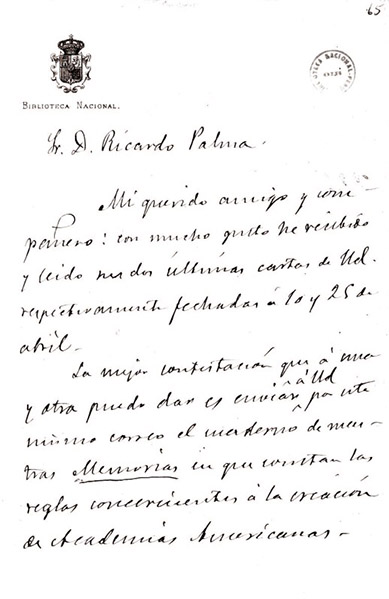 65
BIBLIOTECA NACIONAL.
BIBLIOTECA NACIONAL
Sr. D. Ricardo Palma.
Mi querido amigo y com-
pañero: con mucho gusto he recibido
y leido sus dos últimas cartas de Ud.
respectivamente fechadas á 10 y 25 de
abril.
La mejor contestación que á una
y otra puedo dar es enviar á Ud por este
mismo correo el cuaderno de nues-
tras Memorias en que constan las
reglas concernientes á la creación
de Academias Americanas.